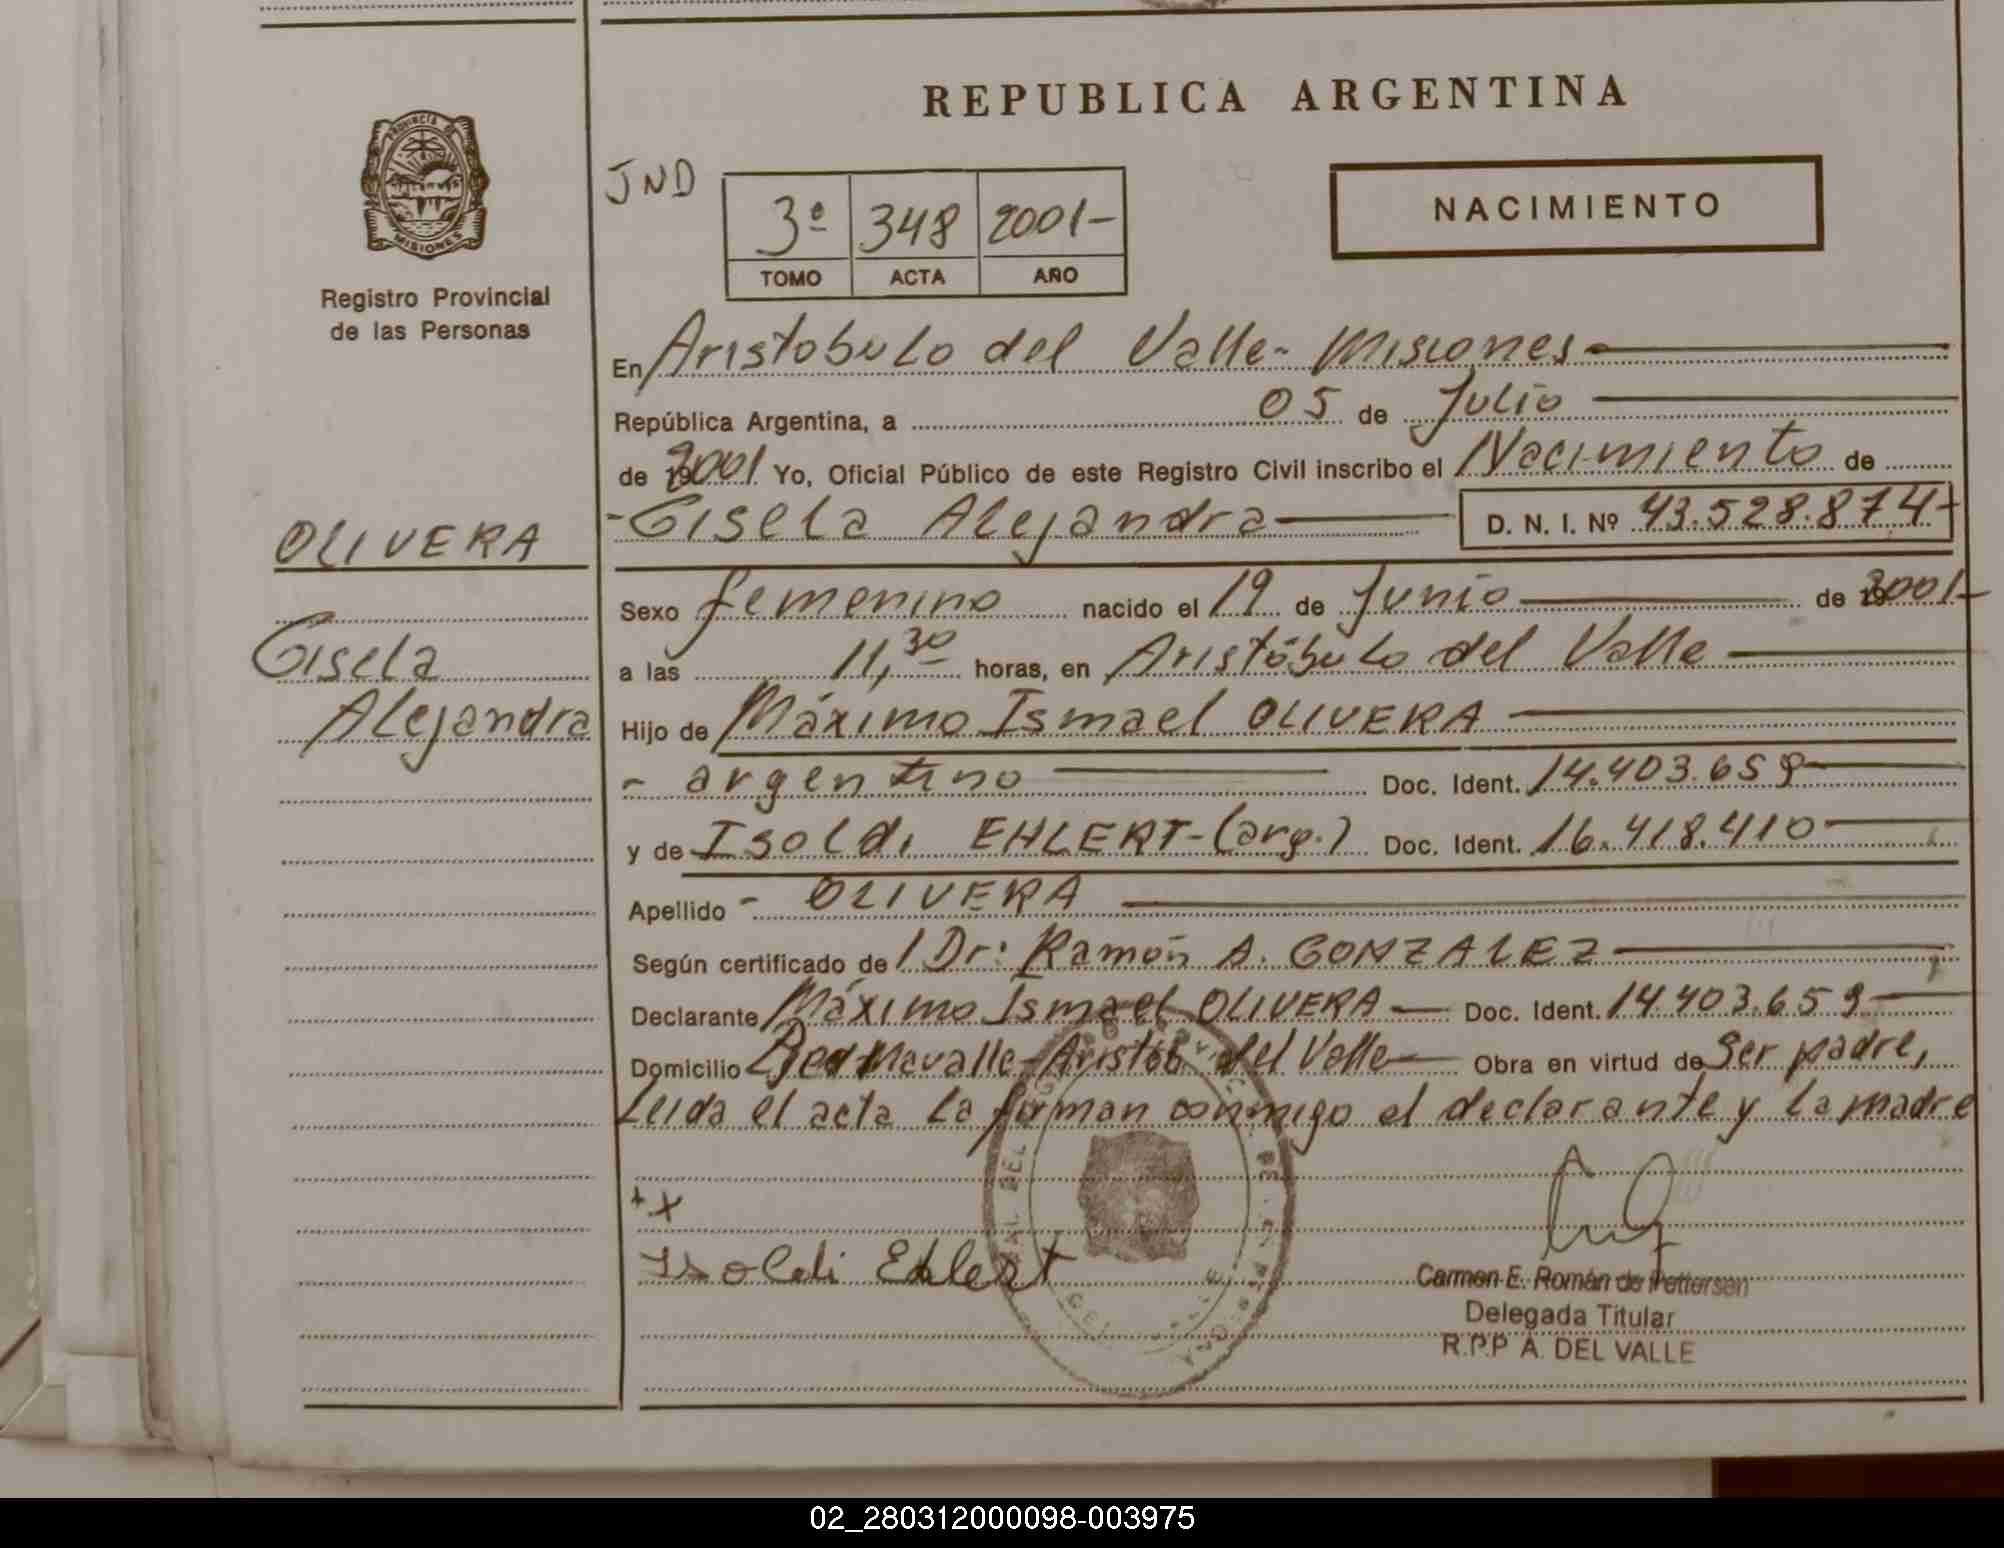 REPUBLICA ARGENTINA
PROVINCIA DE
MISIONES
Registro Provincial
de las Personas
JND
3º 348 2001-
TOMO ACTA AÑO
NACIMIENTO
En Aristobulo del Valle- Misiones
República Argentina, a 05 de Julio
de 2001 Yo, Oficial Público de este Registro Civil inscribo el Nacimiento de
- Gisela Alejandra D. N. I. Nº 43.528.874-
OLIVERA
Gisela
Alejandra
Sexo femenino nacido el 19 de Junio de 2001-
a las 11,30 horas, en Aristóbulo del Valle
Hijo de Máximo Ismael OLIVERA
- argentino Doc. Ident. 14.403.659
y de Isoldi EHLERT-(arg.) Doc. Ident. 16.418.410
Apellido - OLIVERA
Según certificado de Dr: Ramón A. GONZALEZ
Declarante Máximo Ismael OLIVERA Doc. Ident. 14.403.659
Domicilio Aristob. del Valle Obra en virtud de Ser padre,
Leida el acta la firman conmigo el declarante y la madre
Isoldi Ehlert
Carmen E. Román de Pettersen
Delegada Titular
R.P.P A. DEL VALLE
02_280312000098-003975